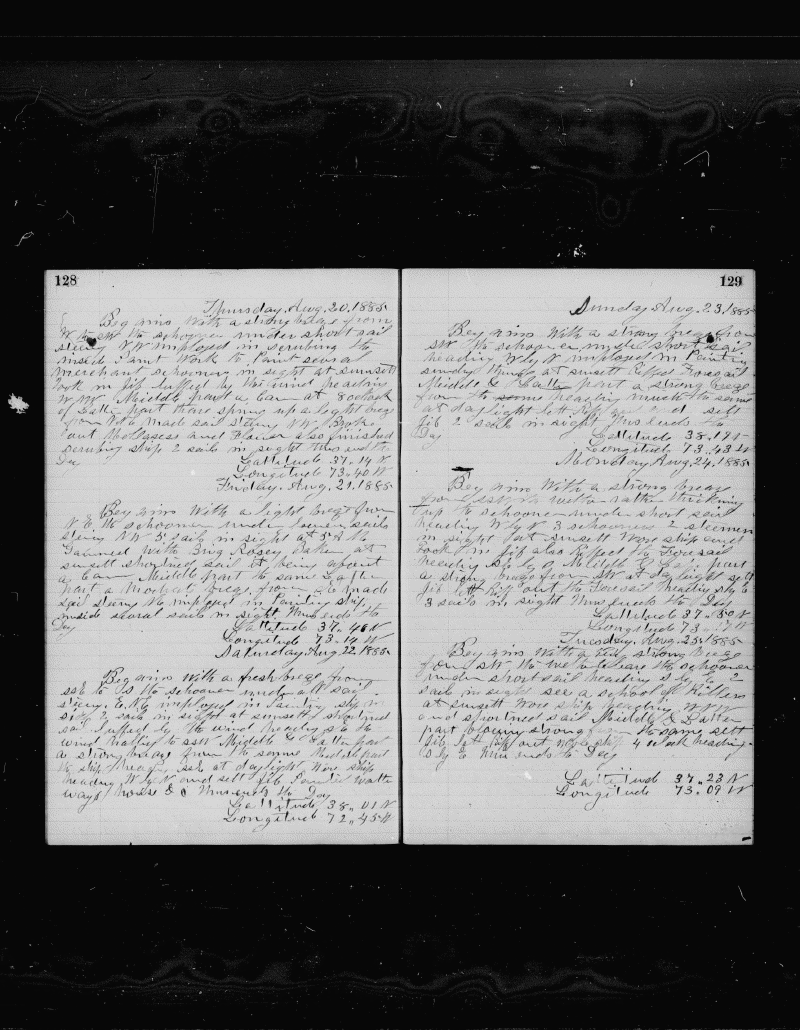 128
Thursday. Aug. 20. 1885
Beg gins With a strong breze from
W to SW the schooner under short sail
steering NW imployed in scrubing the
inside Paint Work to Paint several
merchant schooners in sight at sunsett
took in jib luffed by the wind heading
W NW. Middle part a Cam at 8 oclock
of Latter part thare sprung up a light breze
from N E made sail steering NW. Broke
out Molasses and Flower also finished
scrubing ship 2 sails in sight thus ends the
Day
Lattitude 37.. 14 N
Longitude 73.. 40 W
Friday. Aug. 21. 1885
Beg gins With a light breze from
N. E. the schooner under lower sails
steering NW 5 sails in sight at 5 the
Gammed with Brig Rosey Baker at
sunsett shortned sail it being about
a Cam Middle part the same Latter
part a moderate breze from E made
sail steering imployed in Painting ship
inside several sails in sight thus ends the
Day
Lattitude 37.. 46 N
Longitude 73.. 14 W
Saturday Aug 22 1885
Beg gins With a fresh breze from
SSE to S the schooner under all sail
steering E. NE imployed in Painting ship in
side 2 sails in sight at sunsett shortned
sail luffed by the wind heading to the
wind halling to SSW Middle & Latter part
a strong breze from the same Middle part
the ship heading SE at daylight Wore ship
heading W by N and sett jib Painted Watter
ways house & Thus ends the Day
Lattitude 38.. 01 N
Longitude 72.. 45 W
129
Sunday Aug. 23. 1885
Beg gins With a strong breze from
SW the schooner under short sail
heading W by N imployed in Painting
sundry things at sunsett Reffed Foresail
Middle & Latter part a strong breze
from the same heading much the same
at daylight lett Reff out and sett
jib 2 sails in sight Thus ends the
Day
Lattitude 38..18
Longitude 73..43 W
Monday Aug. 24. 1885
Beg gins With a strong breze
from SSW with rather thickning
up the schooner under short sail
heading W by N 3 schooners 2 steemers
in sight at sunsett Wore ship and
took in jib also Reffed the Foresail
heading SE by Middle & Latter part
a strong breze from SW at daylight sett
jib lett Reff out the Foresail heading S by E
3 sails in sight Thus ends the Day
Lattitude 37.. 50 N
Longitude 73..
Tuesday. Aug. 25. 1885
Beg gins With a strong breze
from SW the schooner
under short sail heading S by E 2
sails in sight see a school of Killers
at sunsett Wore ship heading WNW
and shortned sail Middle & Latter
part blowing strong from the same sett
jib lett Reff out Wore ship 4 oclock heading
S by E Thus ends the Day
Lattitude 37.. 23 N
Longitude 73.. 09 W